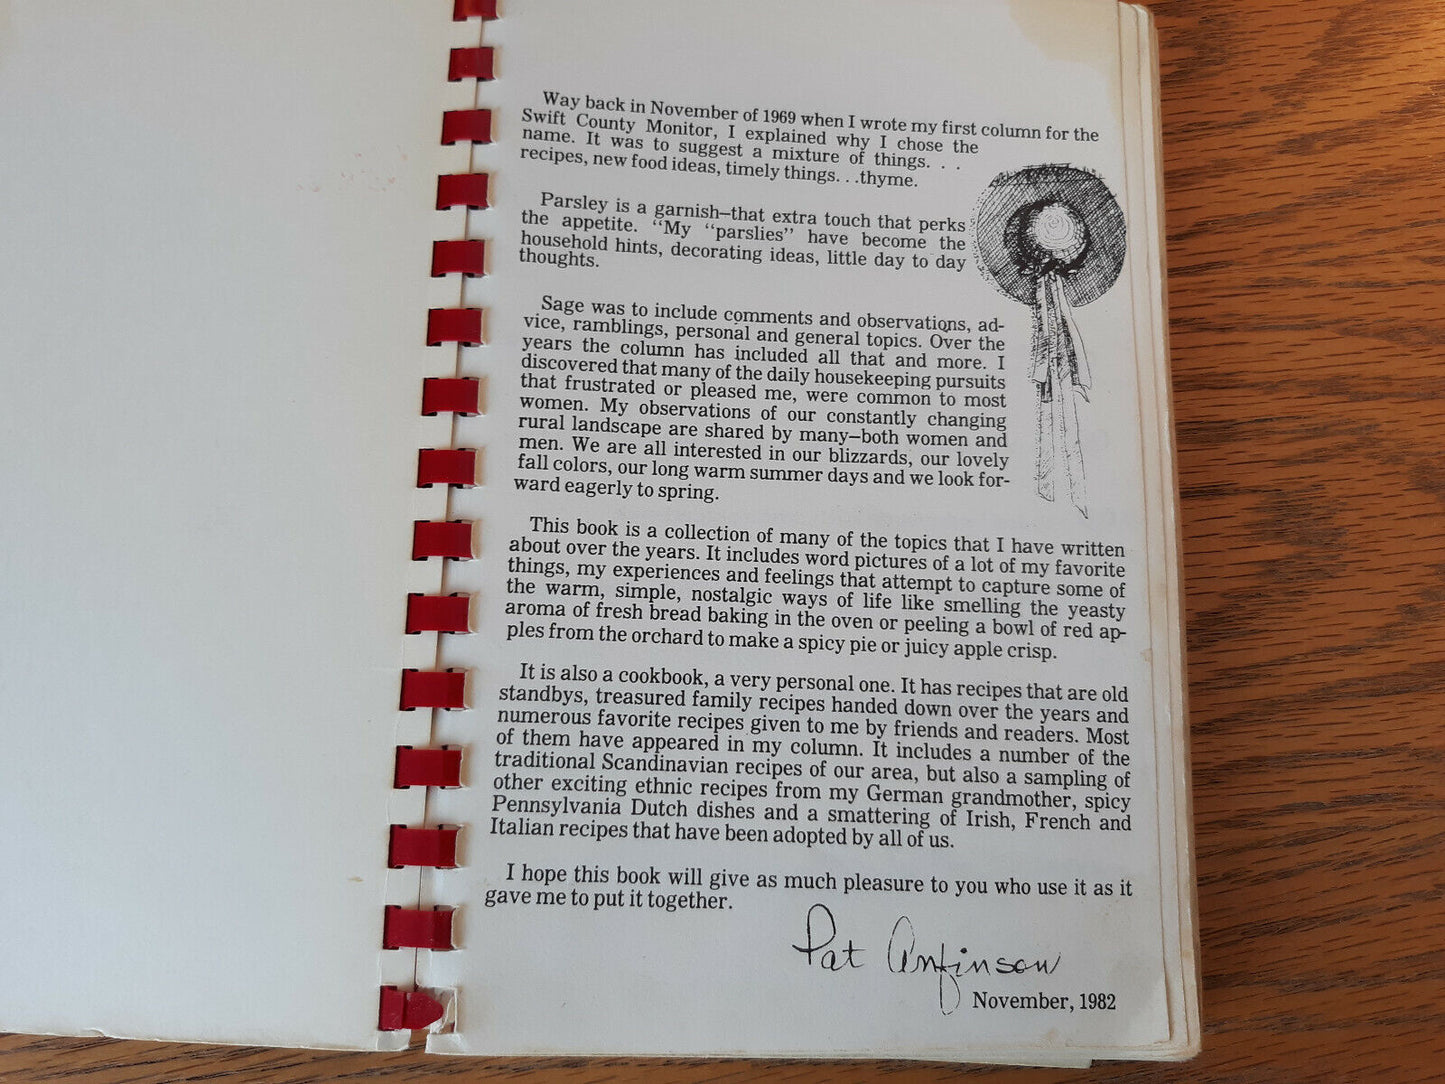 Way back in November of 1969 when I wrote my first column for the
Swift County Monitor, I explained why I chose the
name. It was to suggest a mixture of things. . .
recipes, new food ideas, timely things. . .thyme.
Parsley is a garnish—that extra touch that perks
the appetite. "My "parslies" have become the
household hints, decorating ideas, little day to day
thoughts.
Sage was to include comments and observations, ad-
vice, ramblings, personal and general topics. Over the
years the column has included all that and more. I
discovered that many of the daily housekeeping pursuits
that frustrated or pleased me, were common to most
women. My observations of our constantly changing
rural landscape are shared by many—both women and
men. We are all interested in our blizzards, our lovely
fall colors, our long warm summer days and we look for-
ward eagerly to spring.
This book is a collection of many of the topics that I have written
about over the years. It includes word pictures of a lot of my favorite
things, my experiences and feelings that attempt to capture some of
the warm, simple, nostalgic ways of life like smelling the yeasty
aroma of fresh bread baking in the oven or peeling a bowl of red ap-
ples from the orchard to make a spicy pie or juicy apple crisp.
It is also a cookbook, a very personal one. It has recipes that are old
standbys, treasured family recipes handed down over the years and
numerous favorite recipes given to me by friends and readers. Most
of them have appeared in my column. It includes a number of the
traditional Scandinavian recipes of our area, but also a sampling of
other exciting ethnic recipes from my German grandmother, spicy
Pennsylvania Dutch dishes and a smattering of Irish, French and
Italian recipes that have been adopted by all of us.
I hope this book will give as much pleasure to you who use it as it
gave me to put it together.
Pat Anfinson
November, 1982